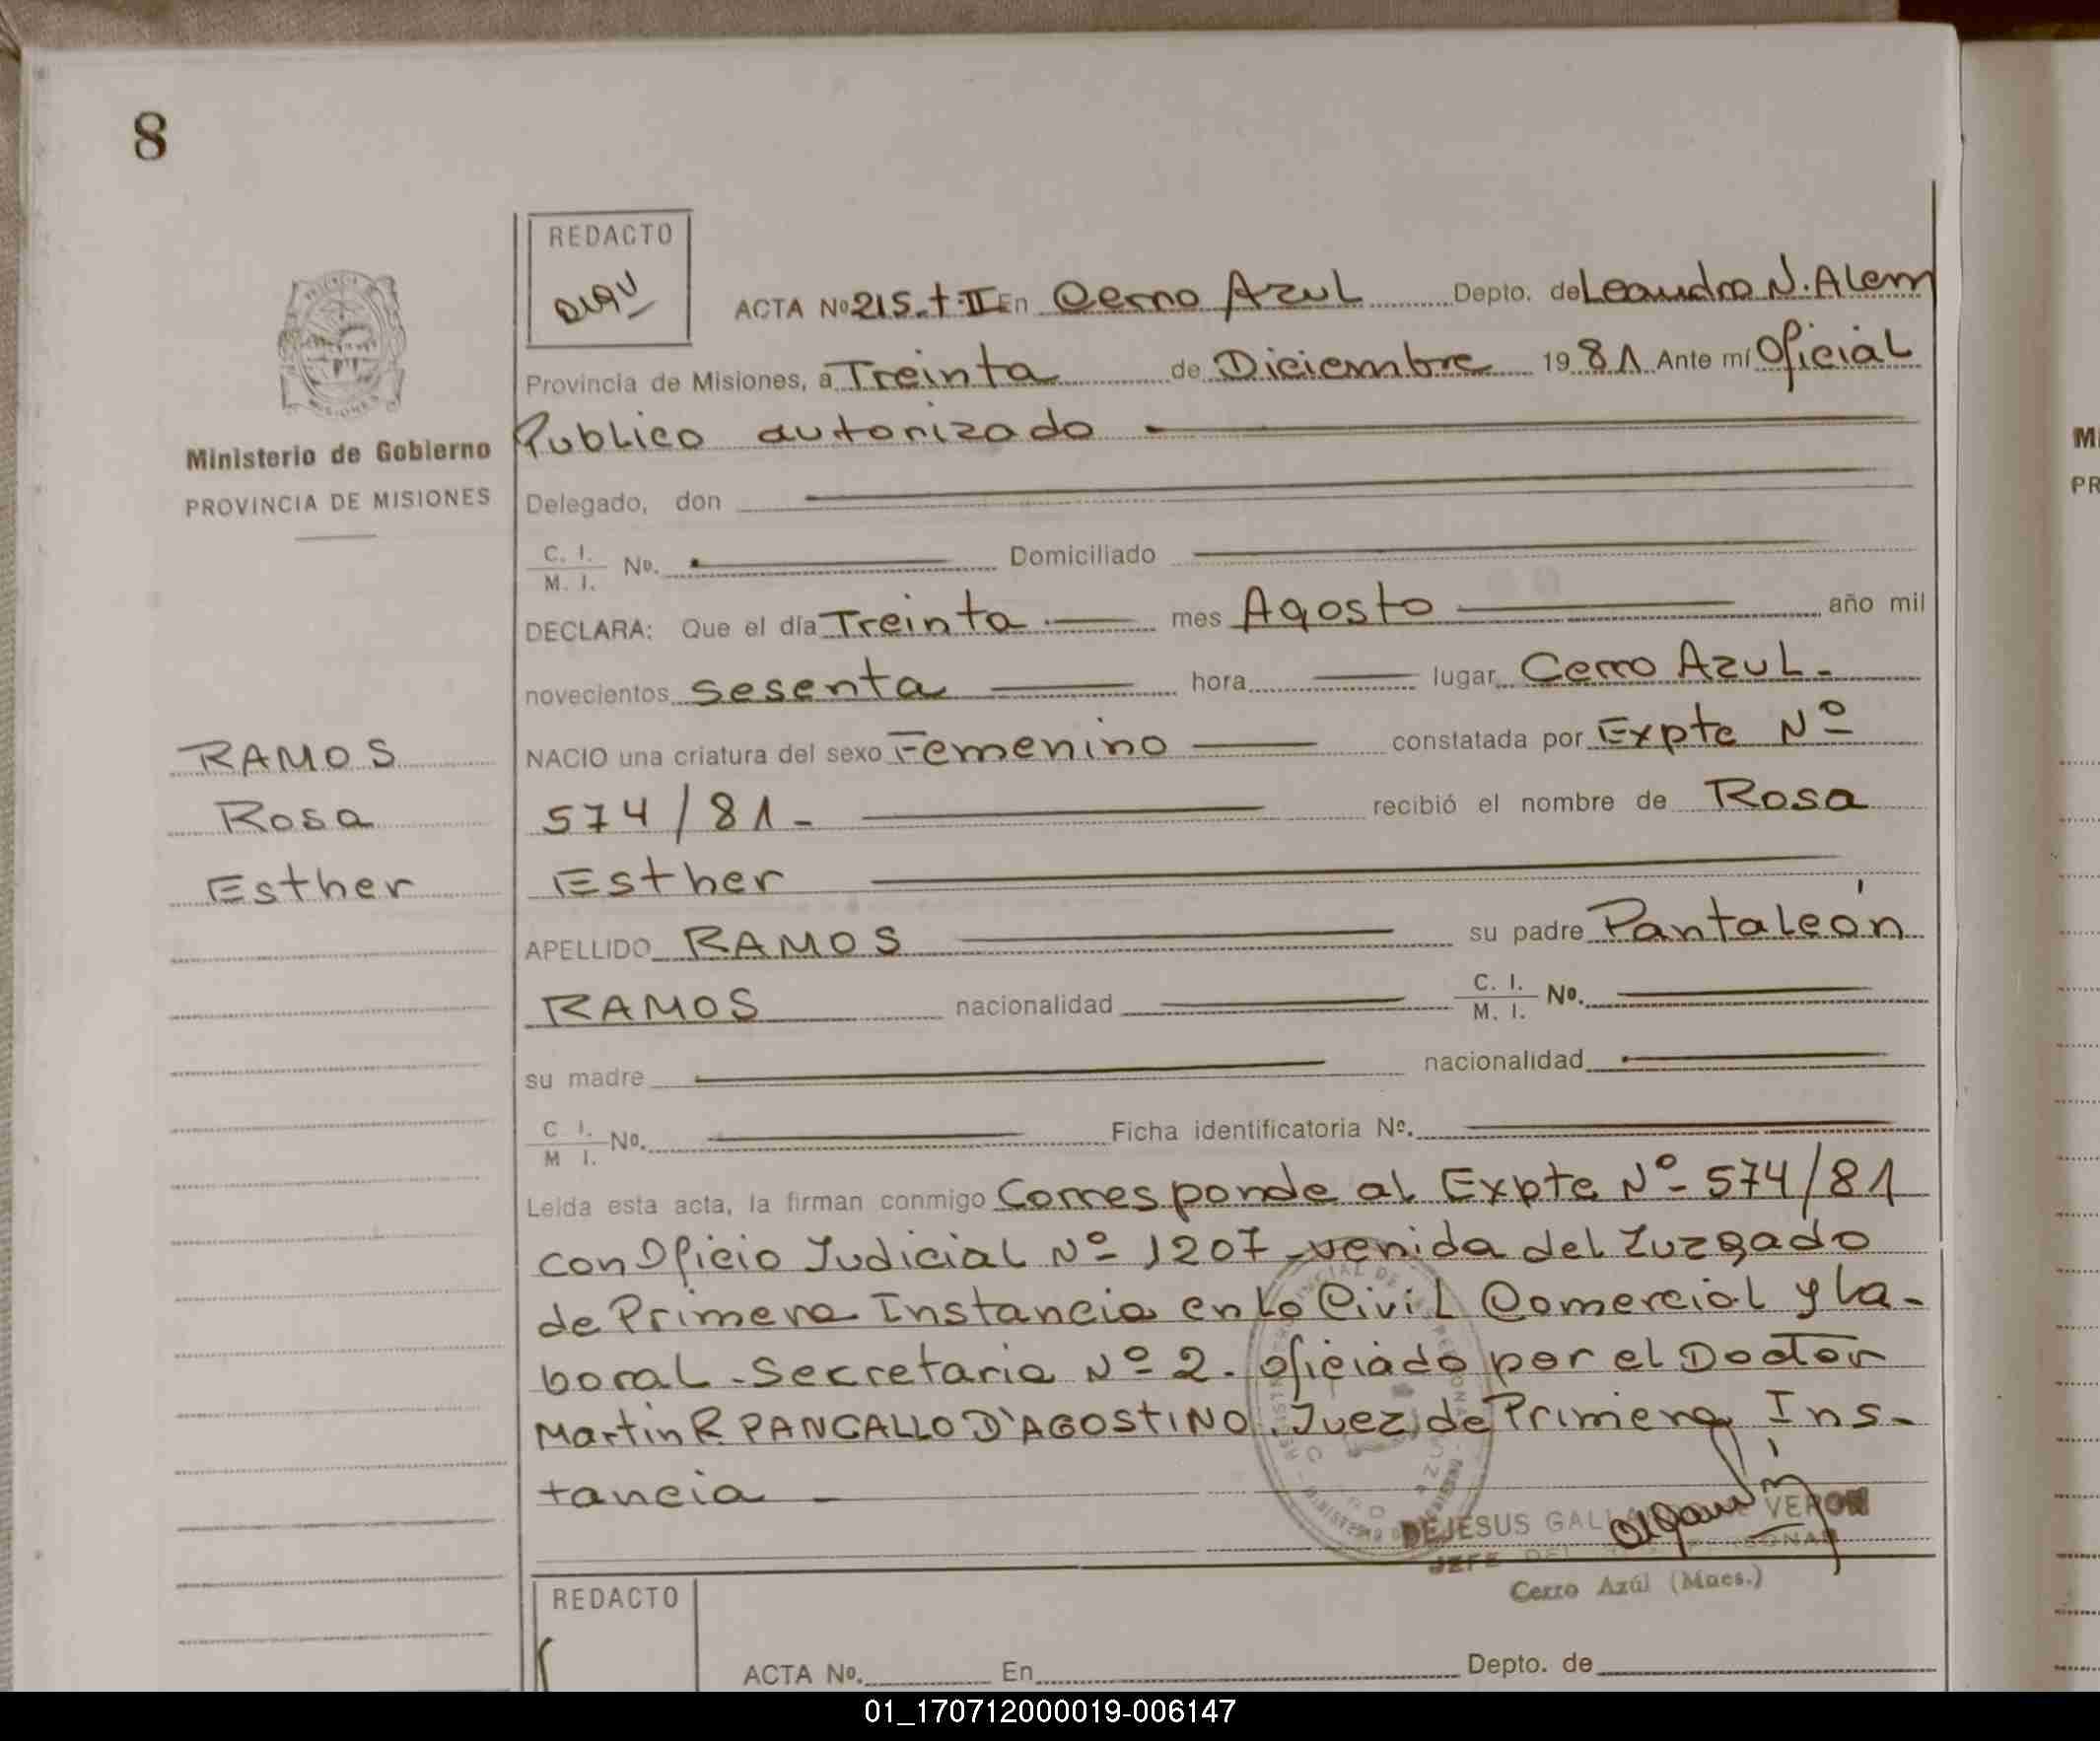 8
REDACTO
ACTA Nº 215. t. II En Cerro Azul Depto. de Leandro N. Alem
Provincia de Misiones, a Treinta de Diciembre 1981 Ante mí Oficial
Publico autorizado
Ministerio de Gobierno
PROVINCIA DE MISIONES
Delegado, don
C. I. / M. I. Nº. Domiciliado
DECLARA: Que el día Treinta mes Agosto año mil
novecientos sesenta hora lugar Cerro Azul.
RAMOS
Rosa
Esther
NACIO una criatura del sexo Femenino constatada por Expte Nº
574/81 - recibió el nombre de Rosa
Esther
APELLIDO RAMOS su padre Pantaleón
RAMOS nacionalidad C. I. / M. I. Nº.
su madre nacionalidad
C I. / M I. Nº. Ficha identificatoria Nº.
Leída esta acta, la firman conmigo Corresponde al Expte Nº 574/81
con Oficio Judicial Nº 1207 venida del Juzgado
de Primera Instancia en lo Civil Comercial y la-
boral - Secretaria Nº 2. oficiado por el Doctor
Martin R. PANCALLO D'AGOSTINO. Juez de Primera Ins-
tancia -
DEJESUS VERON
JEFE
Cerro Azúl (Mnes.)
REDACTO
ACTA Nº. En Depto. de
M
PR
01_170712000019-006147